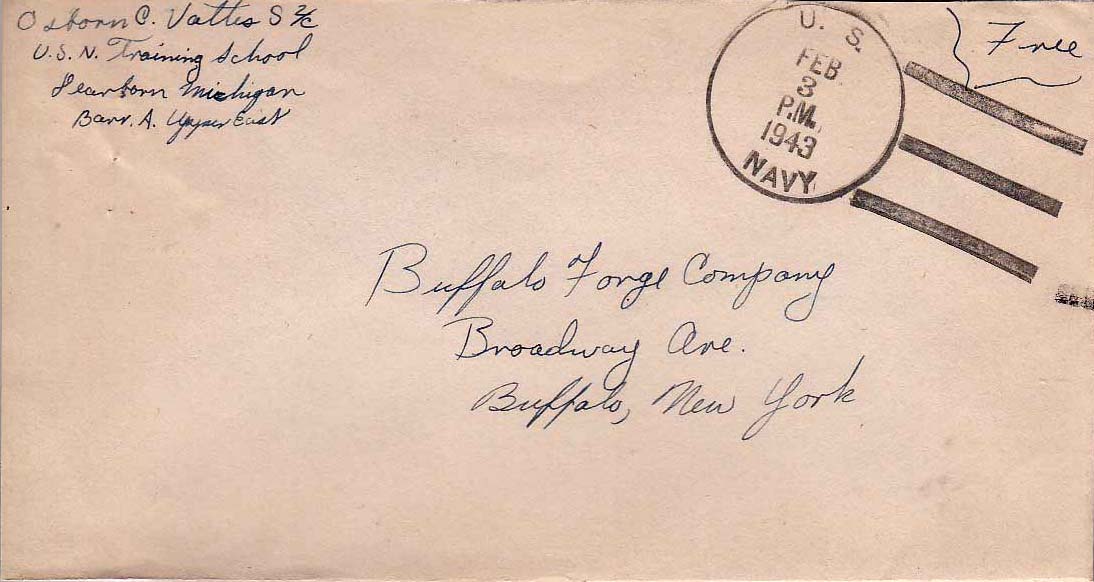 Osborn C. Vattes S 2/c
U.S.N. Training School
Dearborn Michigan
Barr. A. Upper East
Free
U. S.
FEB
3
P.M.
1943
NAVY
Buffalo Forge Company
Broadway Ave.
Buffalo, New York